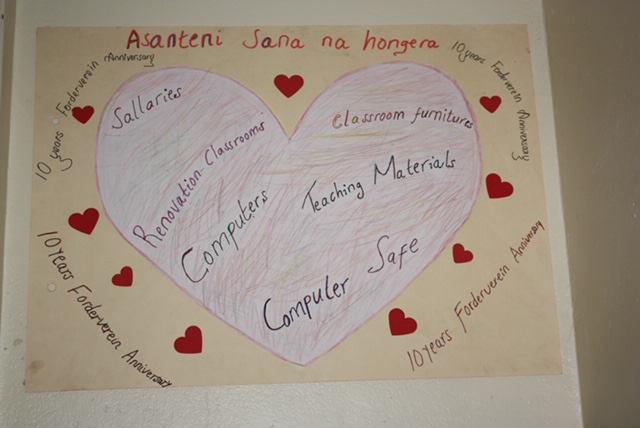 Asanteni Sana na hongera
10 years Forderverein Anniversary
10 years Forderverein Anniversary
Sallaries
Classroom furnitures
Renovation-Classrooms
Teaching Materials
Computers
Computer Safe
10 Years Forderverein Anniversary
10 years Forderverein Anniversary